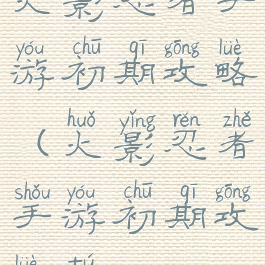 火影忍者手
yóu chū qī gōng lüè
游初期攻略
huǒ yǐng rén zhě
（火影忍者
shǒu yóu chū qī gōng
手游初期攻
lüè